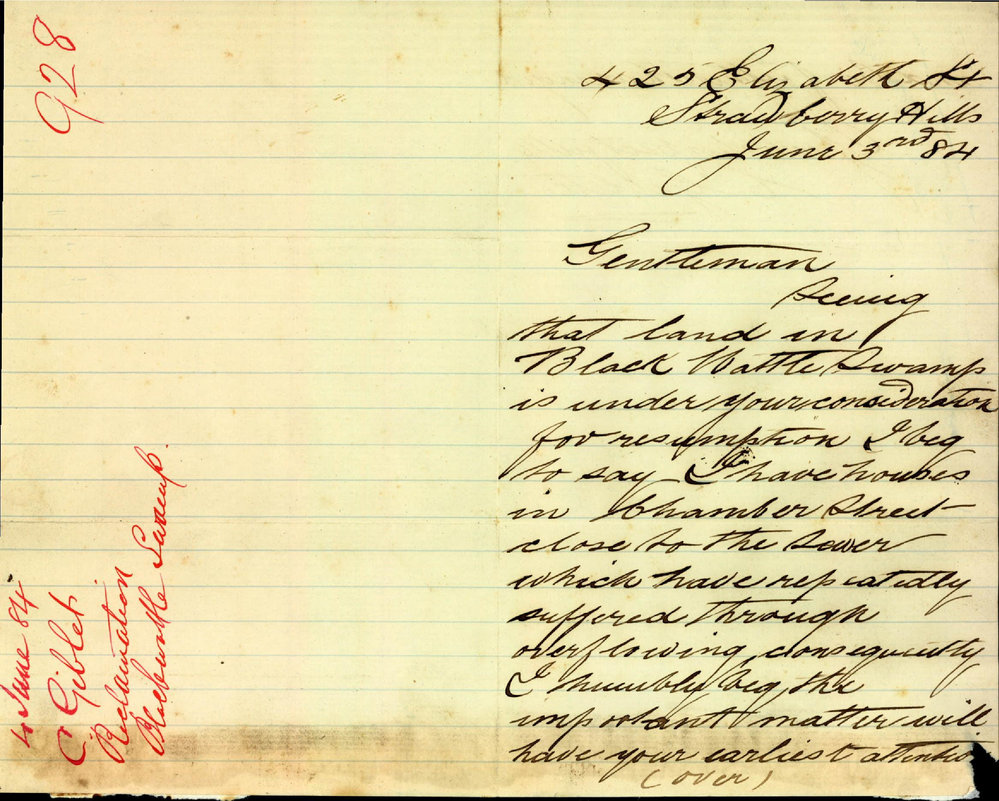 928
4 June 84
C Giblet
Reclamation
Blackwattle Swamp.
425 Elizabeth St
Strawberry Hills
June 3rd 84
Gentleman
Seeing
that land in
Black Wattle Swamp
is under your consideration
for resumption I beg
to say I have houses
in Chamber Street
close to the sewer
which have repeatedly
suffered through
overflowing, consequently
I humbly beg the
important matter will
have your earliest attention
(over)